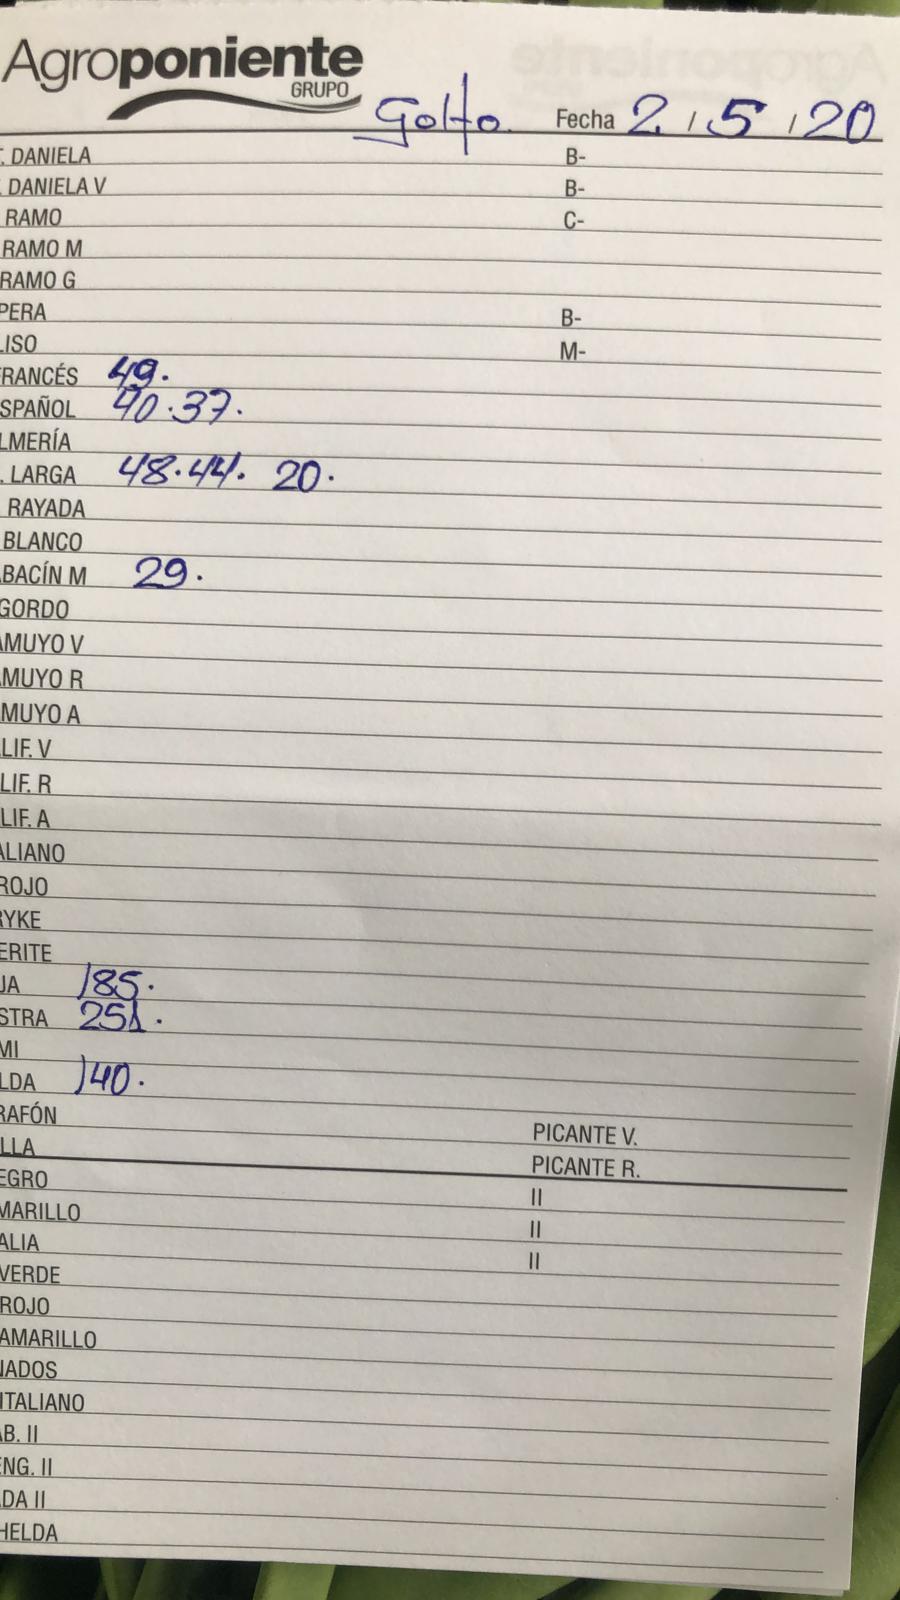 Agroponiente
GRUPO
Golfo. Fecha 2 / 5 / 20
T. DANIELA B-
. DANIELA V B-
RAMO C-
RAMO M
RAMO G
PERA B-
LISO M-
FRANCÉS 49.
SPAÑOL 40.37.
LMERÍA
. LARGA 48.44. 20.
RAYADA
BLANCO
ABACÍN M 29.
GORDO
AMUYO V
AMUYO R
MUYO A
LIF. V
LIF. R
LIF. A
ALIANO
ROJO
RYKE
ERITE
JA 185.
STRA 251.
MI
LDA 140.
RAFÓN PICANTE V.
LLA PICANTE R.
EGRO II
MARILLO II
ALIA II
VERDE
ROJO
AMARILLO
NADOS
ITALIANO
AB. II
ENG. II
ADA II
HELDA